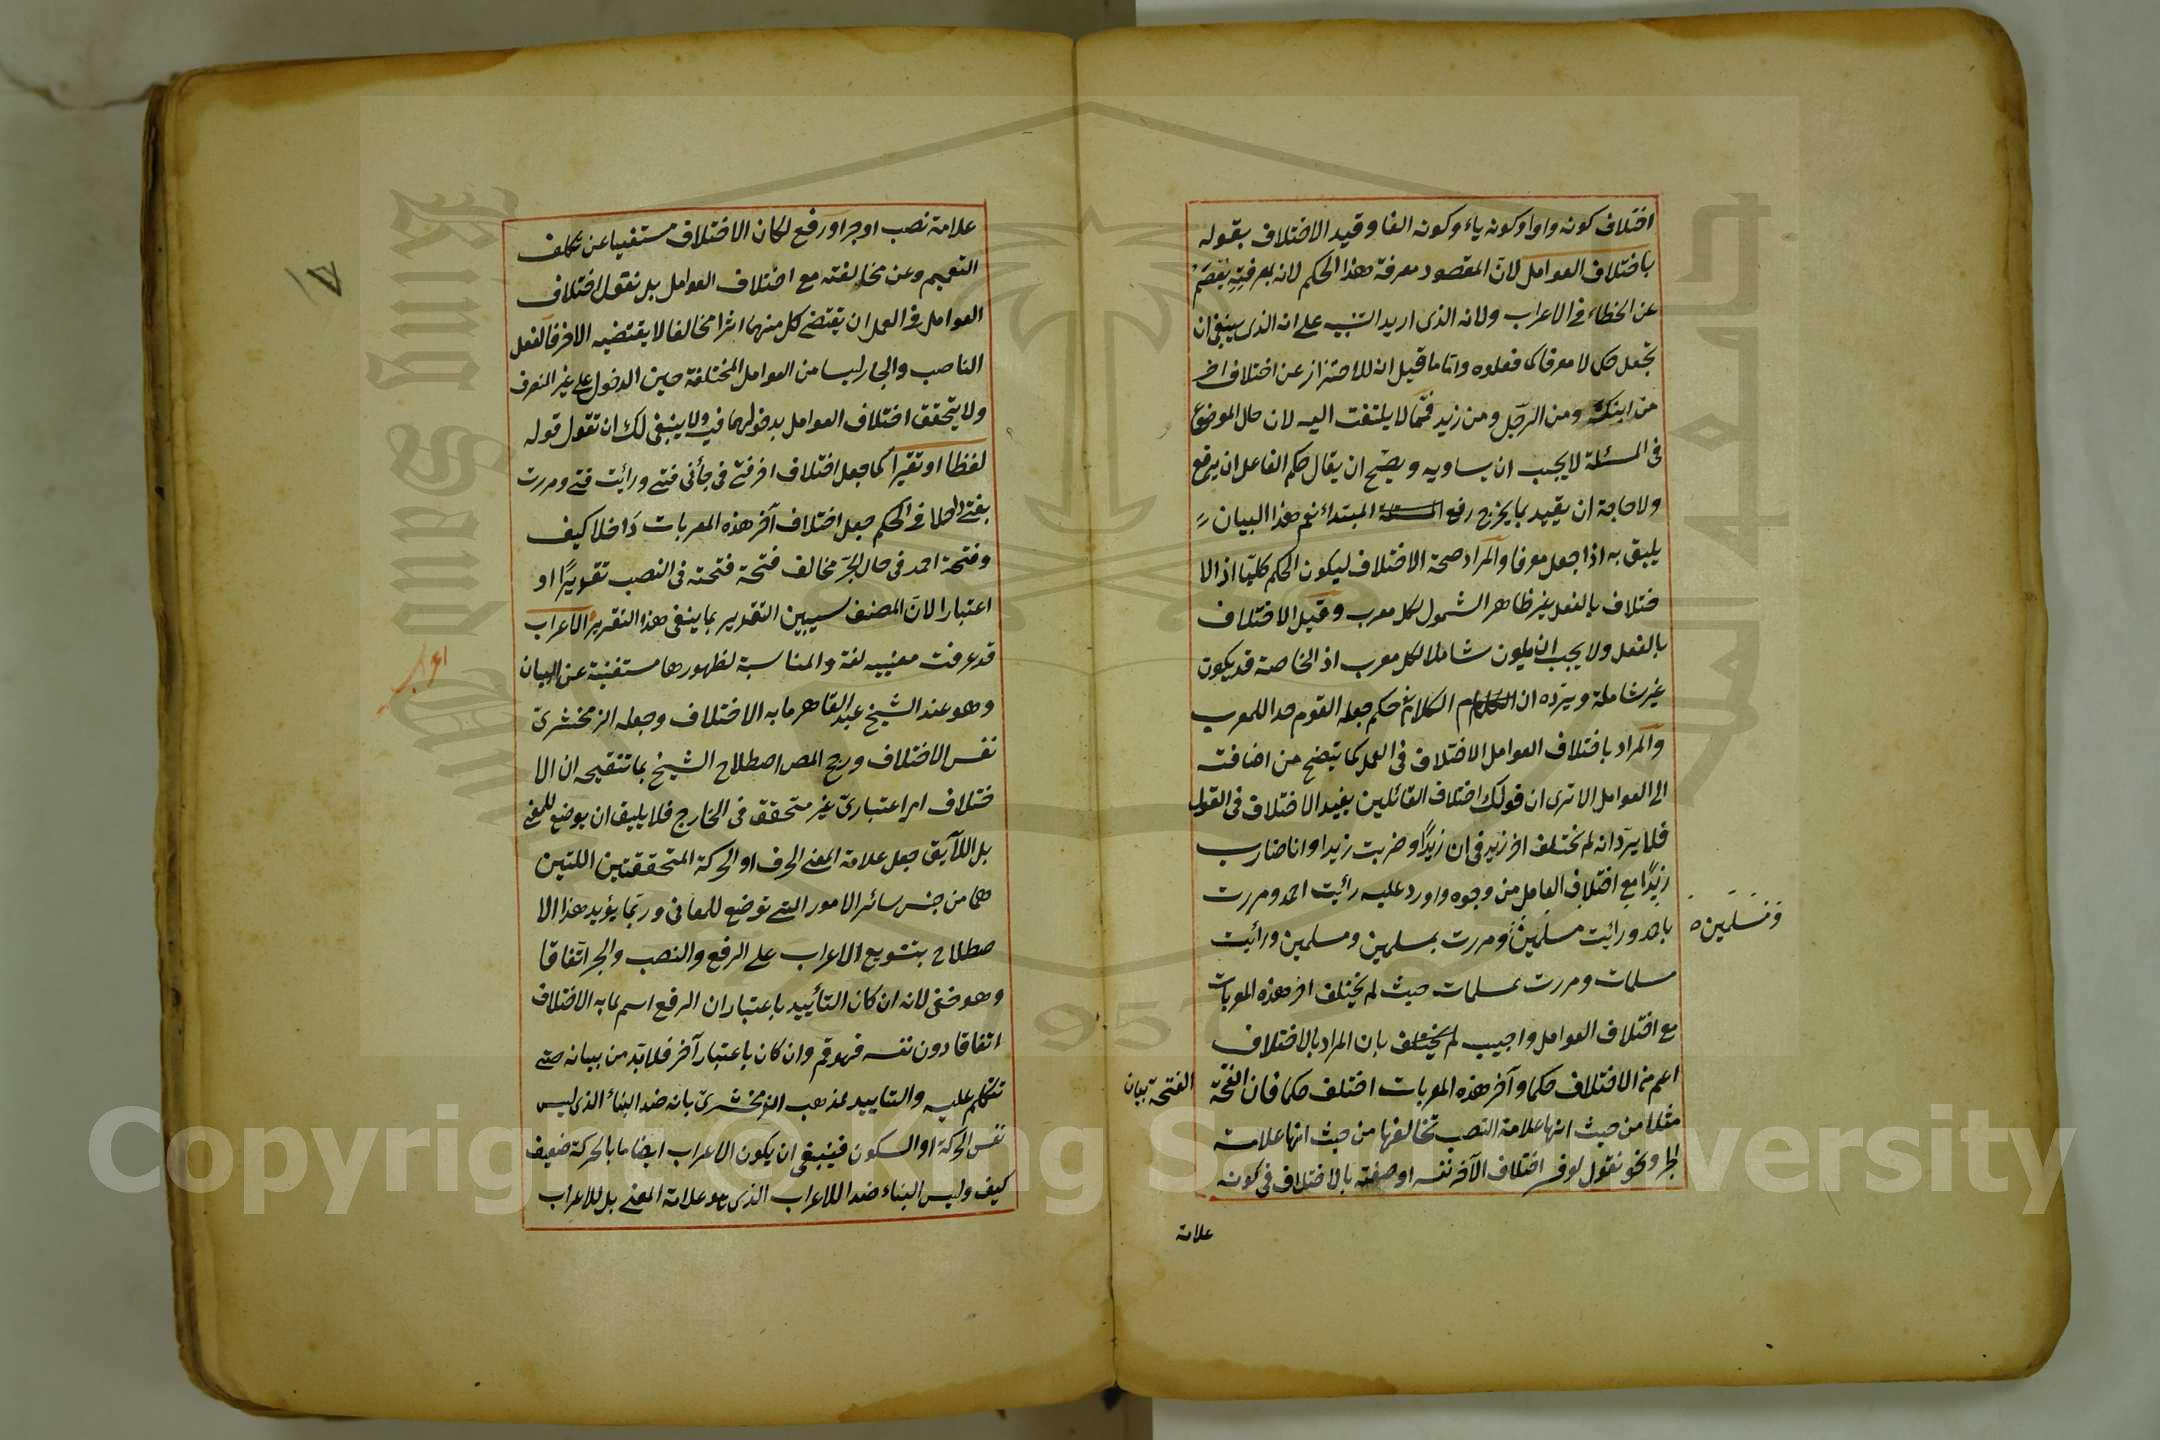 اختلاف كونه واوا وكونه ياء وكونه الفا وقيد الاختلاف بقوله
باختلاف العوامل لان المقصود معرفة هذا الحكم لانه بمعرفته يعصم
عن الخطاء في الاعراب ولانه الذى اريد التنبيه على انه الذى ينبغي ان
يجعل حكما لا معرفا كما فعلوه واما ما قيل انه للاحتراز عن اختلاف اخر
من ابنك ومن الرجل ومن زيد فمما لا يلتفت اليه لان حال الموضوع
في المسئلة لا يجب ان يساويه ويصح ان يقال حكم الفاعل ان يرفع
ولا حاجة ان يقيد بما يخرج رفع المبتداء نعم هذا البيان
يليق به اذا جعل معرفا والمراد صحة الاختلاف ليكون الحكم كليا اذ الا
ختلاف بالفعل غير ظاهر الشمول لكل معرب وقيل الاختلاف
بالفعل ولا يجب ان يكون شاملا لكل معرب اذ الخاصة قد يكون
غير شاملة ويرده ان الكلام في حكم جعله القوم حدا للمعرب
والمراد باختلاف العوامل الاختلاف في العمل كما يتضح من اضافته
الى العوامل الا ترى ان قولك اختلاف القائلين يفيد الاختلاف في القول
فلا يرد انه لم يختلف اخر زيد في ان زيدا وضربت زيدا وانا ضارب
زيدا مع اختلاف العامل من وجوه واورد عليه رائيت احمد ومررت
باحمد ورائيت مسلمين ومررت بمسلمين ومسلمين ورائيت
مسلمات ومررت بمسلمات حيث لم يختلف اخر هذه المعربات
مع اختلاف العوامل واجيب بان المراد بالاختلاف
اعم من الاختلاف حكما وآخر هذه المعربات اختلف حكما فان الفتحة
مثلا من حيث انها علامة النصب تخالفها من حيث انها علامة
الجر ونحن نقول لو فسر اختلاف الآخر نفسه او صفته بالاختلاف في كونه
الفتحة بيان
علامة
علامة نصب او جر او رفع لكان الاختلاف مستغنيا عن تكلف
التعميم وعن مخالفته مع اختلاف العوامل بل نقول اختلاف
العوامل في العمل ان يقتضي كل منهما اثرا مخالفا لا يقتضيه الاخر فالفعل
الناصب والجار ليسا من العوامل المختلفة حين الدخول على غير المنصرف
ولا يتحقق اختلاف العوامل بدخولهما فيه ولا ينبغي لك ان تقول قوله
لفظا او تقديرا كما جعل اختلاف اخر فتى في جاءني فتى ورائيت فتى ومررت
بفتى داخلا في الحكم جعل اختلاف آخر هذه المعربات داخلا كيف
وفتحة احمد في حال الجر مخالف فتحة فتحته في النصب تقديرا او
اعتبارا لان المصنف سيبين التقدير بما ينفي هذا التقرير الاعراب
قد عرفت معنييه لغة والمناسبة لظهورها مستغنية عن البيان
وهو عند الشيخ عبد القاهر ما به الاختلاف وجعله الزمخشرى
نفس الاختلاف ورجح المص اصطلاح الشيخ بما تنقيحه ان الا
ختلاف امر اعتبارى غير متحقق في الخارج فلا يليق ان يوضع للمعنى
بل اللايق جعل علامة المعنى الحرف او الحركة المتحققتين اللتين
هما من جنس سائر الامور التي توضع للمعاني وربما يؤيد هذا الا
صطلاح بتنويع الاعراب على الرفع والنصب والجر اتفاقا
وهو خفي لانه ان كان التأييد باعتبار ان الرفع اسم لما به الاختلاف
اتفاقا دون نفسه فهو تم وان كان باعتبار آخر فلا بد من بيانه حتى
نتكلم عليه والتاييد لمذهب الزمخشرى بانه ضد البناء الذى ليس
نفس الحركة او السكون فينبغي ان يكون الاعراب ايضا ما بالحركة ضعيف
كيف وليس البناء ضد اللاعراب الذى هو علامة المعنى بل للاعراب
Copyright © King Saud University